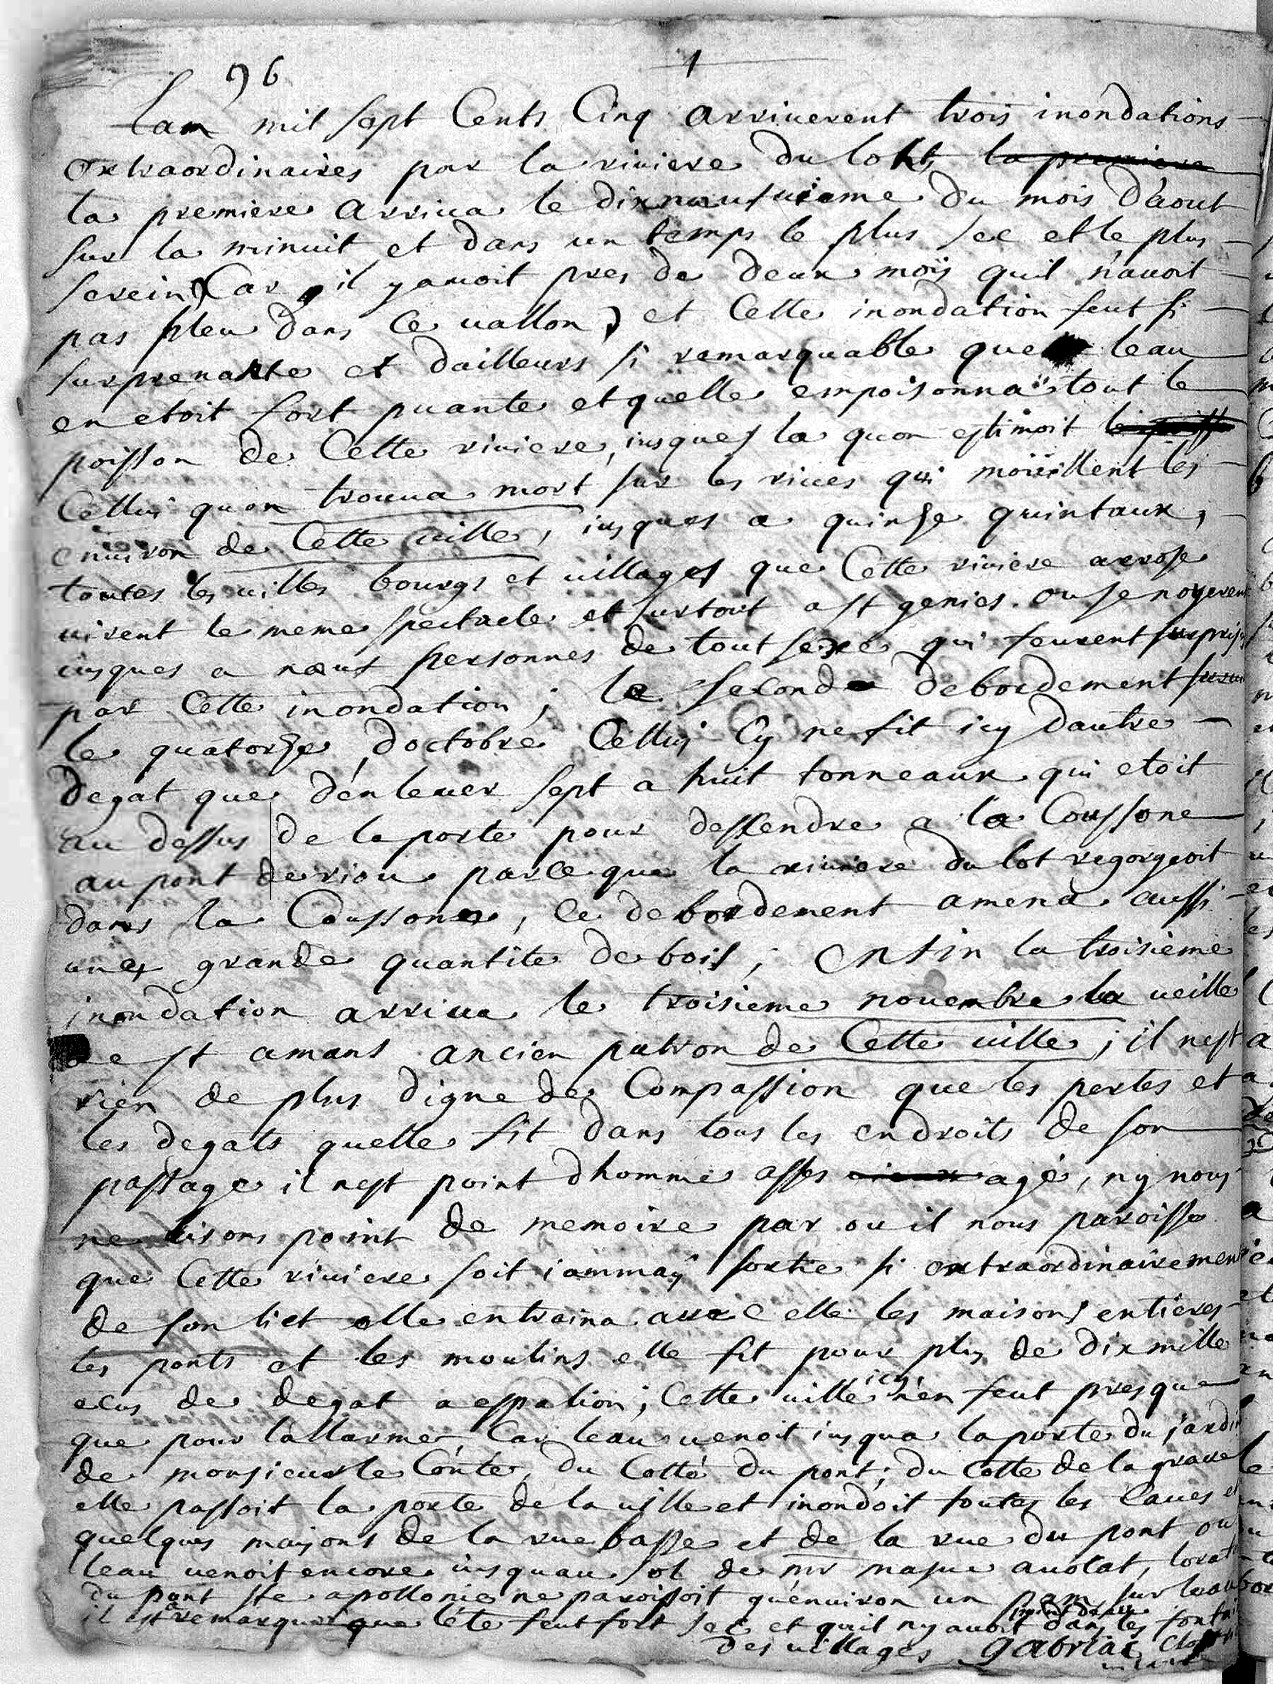 96 1
Lan mil sept Cents Cinq arriverent trois inondations
extraordinaires par la riviere du loht, la premiere
la premiere arriva le dixneufuieme du mois d'aout
sur la minuit et dans un temps le plus sec et le plus
serein (Car il yavoit pres de deux mois quil n'avoit
pas pleu dans ce uallon) et Cette inondation feut si
surprenante et dailleurs si remarquable que leau
en etoit fort puante et quelle empoisonna tout le
poisson de Cette riviere, iusques la quon estimoit
Celluy quon trouua mort sur les riues qui moüillent les
environ de Cette uille, iusques a quinse quintaux,
toutes les uilles bourgs et uillages que Cette riviere arrose
uirent le meme spectacle et surtout a st genies. ou se noyerent
iusques a neuf personnes de tout sexe qui feurent surpris
par Cette inondation; le second debordement
le quatorse d'octobre Celluy Cy ne fit icy dautre
degat que d'enleuer sept a huit tonneaux qui etoit
au dessus de la porte pour dessendre a la Coussone
au pont de riou parce que la riuiere du lot regorgeoit
dans la Coussone, Ce debordement amena aussi
une grande quantite de bois; enfin la troisieme
inondation arriua le troisieme nouembre la ueille
de st amans ancien patron de Cette uille; il nest
rien de plus digne de Compassion que les pertes et
les degats quelle fit dans tous les endroits de son
passage il nest point dhomme asses vieux agé, ny nous
ne lisons point de memoire par ou il nous paroisse
que Cette riviere soit iammay sortie si extraordinairement
de son lict elle entraina avec elle les maisons entieres
les ponts et les moulins elle fit pour plus de dix mille
ecus de degat a espalion; Cette uille icy n'en feut presque
que pour lallarme, Car leau uenoit iusqua la porte du jardin
de monsieur le Conte, du Cotté du pont; du Cotte de la graue
elle passoit la porte de la uille et inondoit toutes les Caues et
quelques maisons de la rue basse et de la rue du pont ou
leau uenoit encore iusquau sol de mr masue auocat,
du pont ste apollonie ne paroissoit qu'enuiron un pan sur leau
il est a remarquer que l'été feut fort sec et quil ny auoit point deau dans les
des uillages gabriac